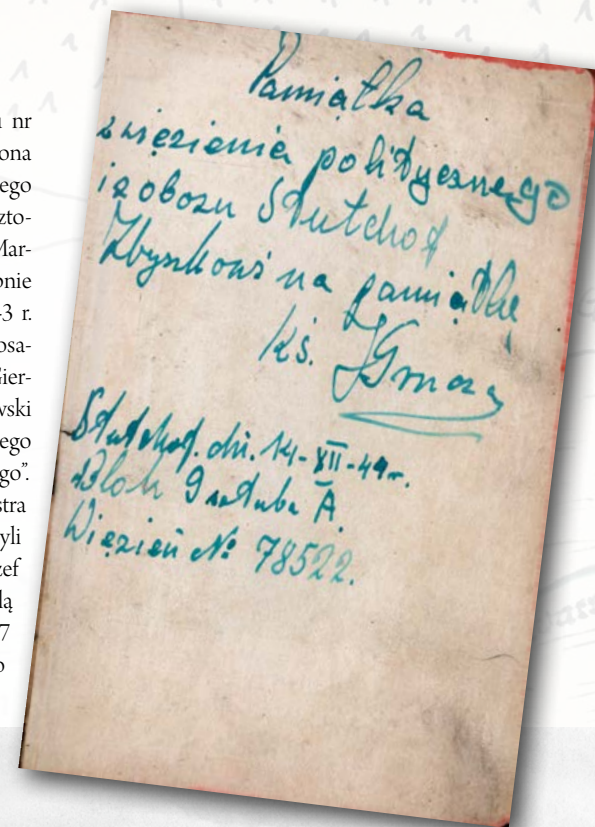 nr
ona
ego
zto-
Mar-
pnie
3 r.
osa-
Gier-
wski
ego
go”.
stra
yli
zef
lą
7
o
Pamiątka
z więzienia politycznego
i z obozu Stutthof
Zbyszkowi na pamiątkę
ks. JGmoza
Stutthof. dn. 14-XII-44r.
Blok 9 sztuba A.
Więzień № 78522.